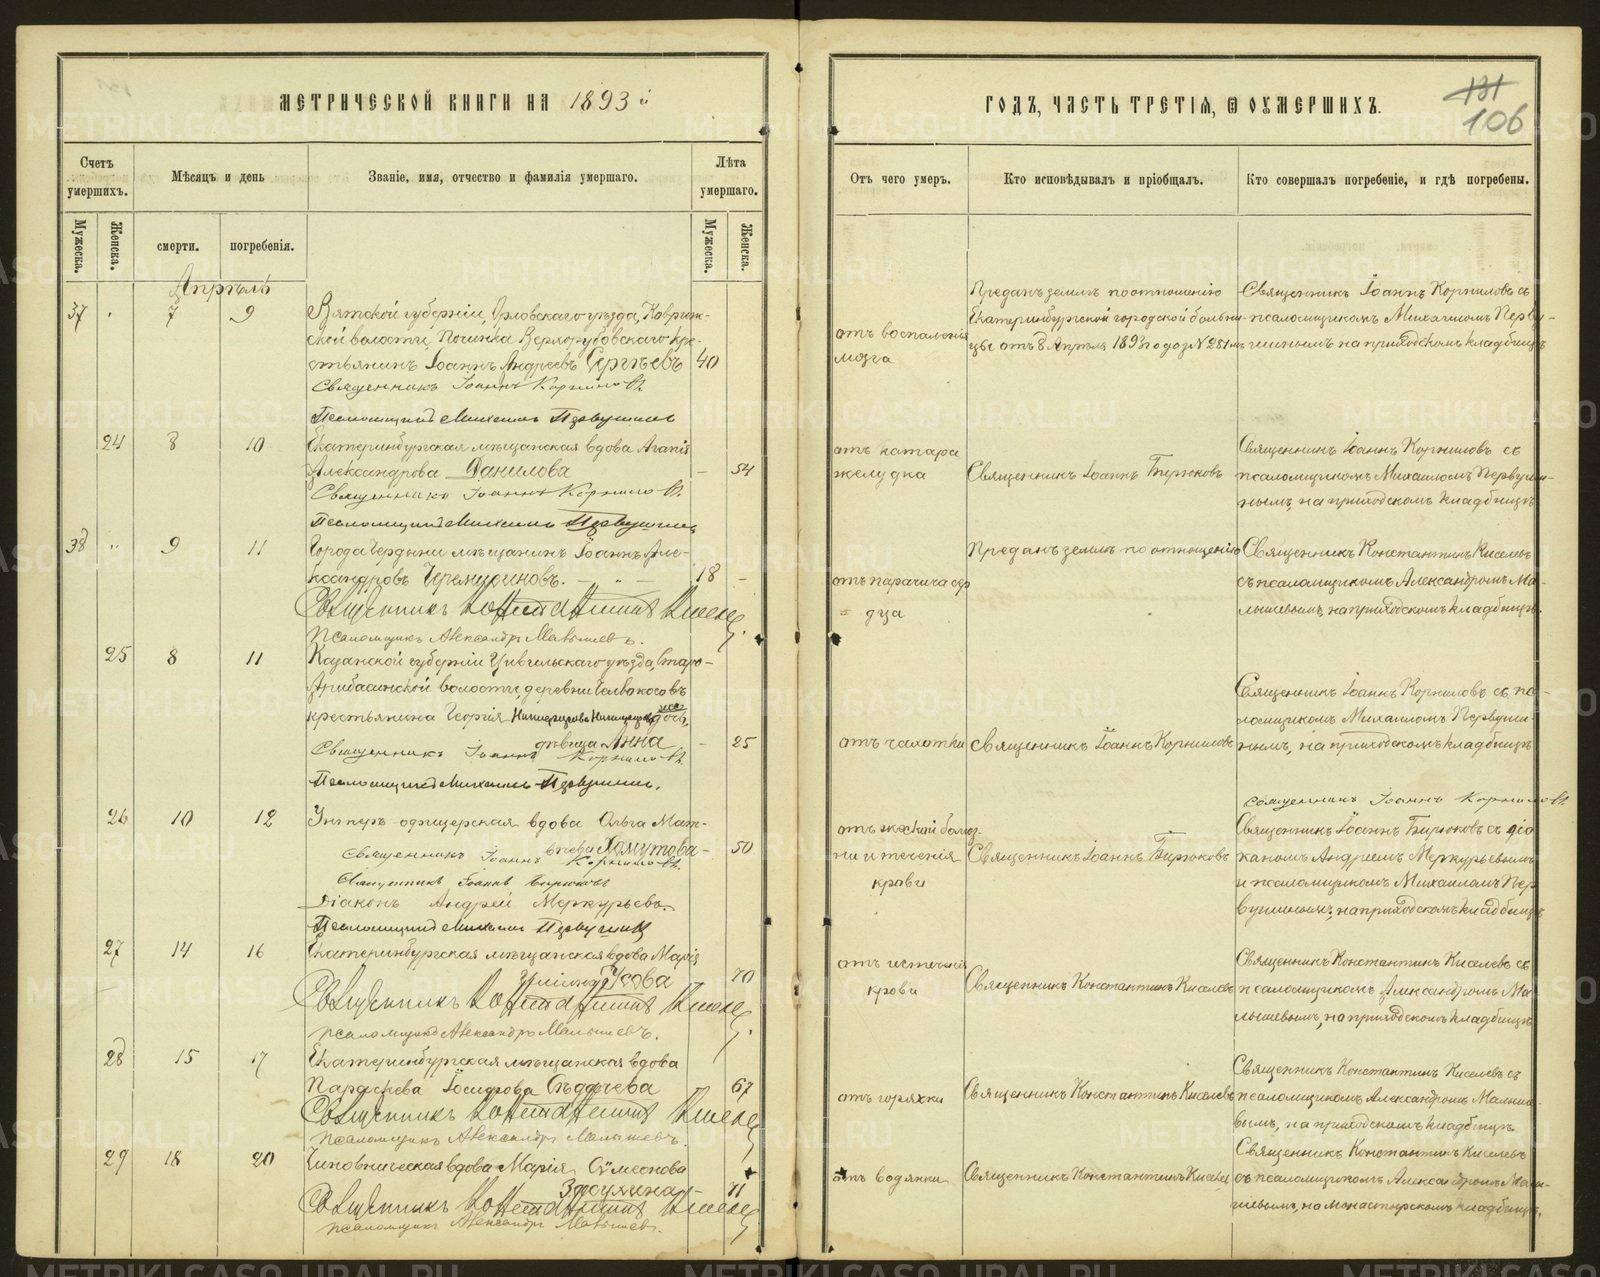 МЕТРИЧЕСКОЙ КНИГИ НА 1893 й
ГОДЪ, ЧАСТЬ ТРЕТІЯ, Ѿ ОУМЕРШИХЪ.
131
106
Счетъ умершихъ.
Мѣсяцъ и день
Званіе, имя, отчество и фамилія умершаго.
Лѣта умершаго.
Отъ чего умеръ.
Кто исповѣдывалъ и пріобщалъ.
Кто совершалъ погребеніе, и гдѣ погребены.
Мужеска.
Женска.
смерти.
погребенія.
Мужеска.
Женска.
Апрѣль
37 7 9
Вятской губерніи, Орловскаго уѣзда,
ской волости, Починка кре-
стьянинъ Іоаннъ Андреевъ Сергѣевъ 40
Священникъ Іоаннъ Корниловъ
Псаломщикъ Михаилъ Первушинъ
отъ воспаленія
мозга
Преданъ землѣ по отношенію
Екатеринбургской городской больни-
цы отъ 8 Апрѣля 1893 года
Священникъ Іоаннъ Корниловъ съ
псаломщикомъ Михаиломъ Перву-
шинымъ на приходскомъ кладбищѣ
24 8 10
Екатеринбургская мѣщанская вдова
Александрова Данилова – 54
Священникъ Іоаннъ Корниловъ
Псаломщикъ Михаилъ Первушинъ
отъ катара
желудка
Священникъ Іоаннъ Бирюковъ
Священникъ Іоаннъ Корниловъ съ
псаломщикомъ Михаиломъ Первуши-
нымъ, на приходскомъ кладбищѣ
38 " 9 11
Города Чердыни мѣщанинъ Іоаннъ Але-
ксандровъ 18 –
Священникъ Константинъ Киселевъ
Псаломщикъ Александръ Малышевъ.
отъ паралича сер
= дца
Преданъ землѣ по отношенію
Священникъ Константинъ Киселевъ
съ псаломщикомъ Александромъ Ма-
лышевымъ, на приходскомъ кладбищѣ.
25 8 11
Казанской губерніи Цивильскаго уѣзда, Старо-
волости, деревни
крестьянина Георгія дочь,
дѣвица Анна – 25
Священникъ Іоаннъ Корниловъ
Псаломщикъ Михаилъ Первушинъ.
отъ чахотки
Священникъ Іоаннъ Корниловъ
Священникъ Іоаннъ Корниловъ съ пса-
ломщикомъ Михаиломъ Первуши-
нымъ, на приходскомъ кладбищѣ
Священникъ Іоаннъ Корниловъ
26 10 12
Унтеръ-офицерская вдова Ольга Мат-
вѣева Хомутова – 50
Священникъ Іоаннъ Корниловъ
Священникъ Іоаннъ Бирюковъ
Діаконъ Андрей Меркурьевъ
Псаломщикъ Михаилъ Первушинъ
отъ женской болѣз-
ни и теченія
крови
Священникъ Іоаннъ Бирюковъ
Священникъ Іоаннъ Бирюковъ съ діа-
кономъ Андреемъ Меркурьевымъ
и псаломщикомъ Михаиломъ Пер-
вушинымъ, на приходскомъ кладбищѣ
27 14 16
Екатеринбургская мѣщанская вдова Марія
Гусова 70
Священникъ Константинъ Киселевъ
псаломщикъ Александръ Малышевъ.
отъ истеченія
крови
Священникъ Константинъ Киселевъ
Священникъ Константинъ Киселевъ съ
псаломщикомъ Александромъ Ма-
лышевымъ, на приходскомъ кладбищѣ
28 15 17
Екатеринбургская мѣщанская вдова
Іосифова 67
Священникъ Константинъ Киселевъ
псаломщикъ Александръ Малышевъ.
отъ горячки
Священникъ Константинъ Киселевъ
Священникъ Константинъ Киселевъ съ
псаломщикомъ Александромъ Малыше-
вымъ, на приходскомъ кладбищѣ
29 18 20
Чиновническая вдова Марія Сѵмеонова
– 71
Священникъ Константинъ Киселевъ
псаломщикъ Александръ Малышевъ.
отъ водянки
Священникъ Константинъ Киселевъ
Священникъ Константинъ Киселевъ
съ псаломщикомъ Александромъ Малы-
шевымъ, на монастырскомъ кладбищѣ.
METRIKI.GASO-URAL.RU